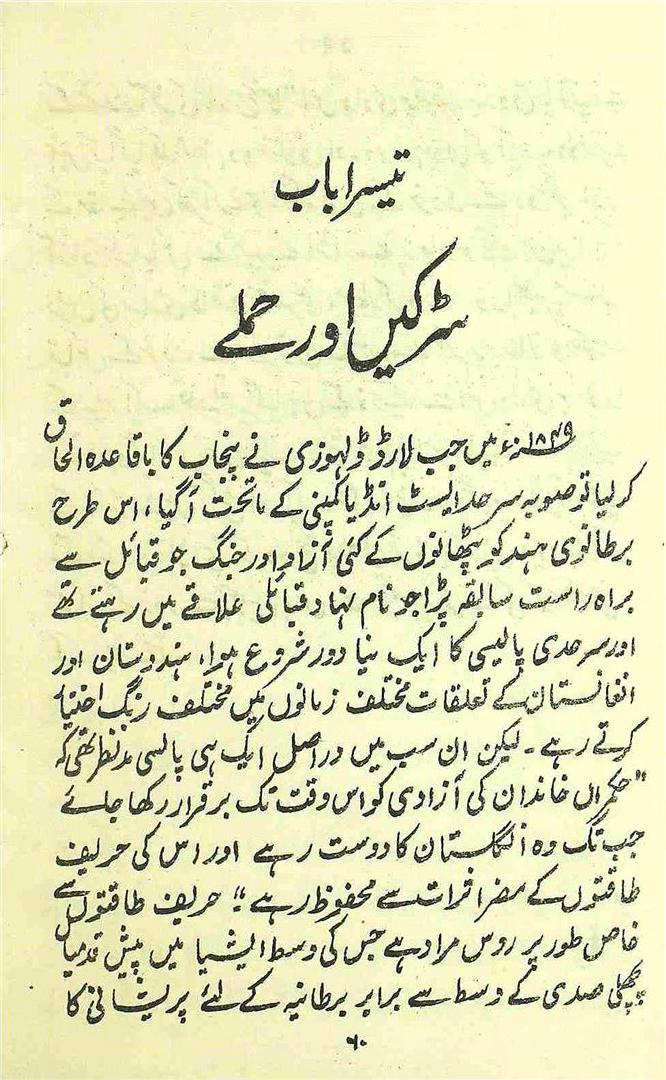 تیسرا باب
سڑکیں اور حملے
۱۸۴۹ء میں جب لارڈ ڈلہوزی نے پنجاب کا باقاعدہ الحاق
کر لیا تو صوبہ سرحد ایسٹ انڈیا کمپنی کے ماتحت آگیا، اس طرح
برطانوی ہند کو پٹھانوں کے کئی آزاد اور جنگ جو قبائل سے
براہ راست سابقہ پڑا جو نام نہاد قبائلی علاقے میں رہتے تھے
اور سرحدی پالیسی کا ایک نیا دور شروع ہوا، ہندوستان اور
افغانستان کے تعلقات مختلف زمانوں میں مختلف رنگ اختیار
کرتے رہے۔ لیکن ان سب میں دراصل ایک ہی پالسی مدنظر تھی کہ
"حکمراں خاندان کی آزادی کو اس وقت تک برقرار رکھا جائے
جب تک وہ انگلستان کا دوست رہے اور اس کی حریف
طاقتوں کے مضر اثرات سے محفوظ رہے"۔ حریف طاقتوں سے
خاص طور پر روس مراد ہے جس کی وسط ایشیا میں پیش قدمیاں
پچھلی صدی کے وسط سے برابر برطانیہ کے لئے پریشانی کا
۶۰